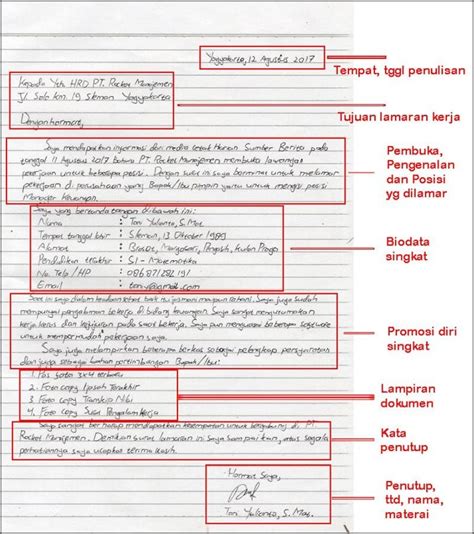 Yogyakarta, 12 Agustus 2017
Tempat, tggl penulisan
Kepada Yth. HRD PT. Rocket Manajemen
Jl. Solo km. 19 Sleman Yogyakarta
Tujuan lamaran kerja
Dengan hormat,
Saya mendapatkan informasi dari media cetak Harian Sumber Berita pada
tanggal 11 Agustus 2017 bahwa PT. Rocket Manajemen membuka lowongan
pekerjaan untuk beberapa posisi. Dengan surat ini saya berminat untuk melamar
pekerjaan di perusahaan yang Bapak/Ibu pimpin yaitu untuk mengisi posisi
Manager Keuangan.
Pembuka,
Pengenalan
dan Posisi
yg dilamar
Saya yang bertanda tangan dibawah ini:
Nama : Toni Yulianto, S. Mat.
Tempat tanggal lahir : Sleman, 13 Oktober 1989
Alamat : Margosari, Pengasih, Kulon Progo
Pendidikan terakhir : S1 - Matematika
No. Telp / HP :
Email :
Biodata
singkat
Saat ini saya dalam keadaan sehat baik itu jasmani maupun rohani. Saya juga sudah
mempunyai pengalaman bekerja di bidang keuangan yang sangat mengutamakan
kerja keras dan kejujuran pada saat bekerja. Saya pun menguasai beberapa software
untuk mempermudah pekerjaan saya.
Saya juga melampirkan beberapa berkas sebagai pelengkap persyaratan
dan juga sebagai bahan pertimbangan Bapak/Ibu:
Promosi diri
singkat
1. Pas foto 3x4 terbaru
2. Foto copy Ijasah Terakhir
3. Foto copy Transkip Nilai
4. Foto copy Surat Pengalam Kerja
Lampiran
dokumen
Saya sangat berharap mendapatkan kesempatan untuk bergabung di PT.
Rocket Manajemen. Demikian surat lamaran ini saya sampaikan, atas segala
perhatiannya saya ucapkan terima kasih.
Kata
penutup
Hormat Saya,
Toni Yulianto, S. Mat.
Penutup,
ttd, nama,
materai